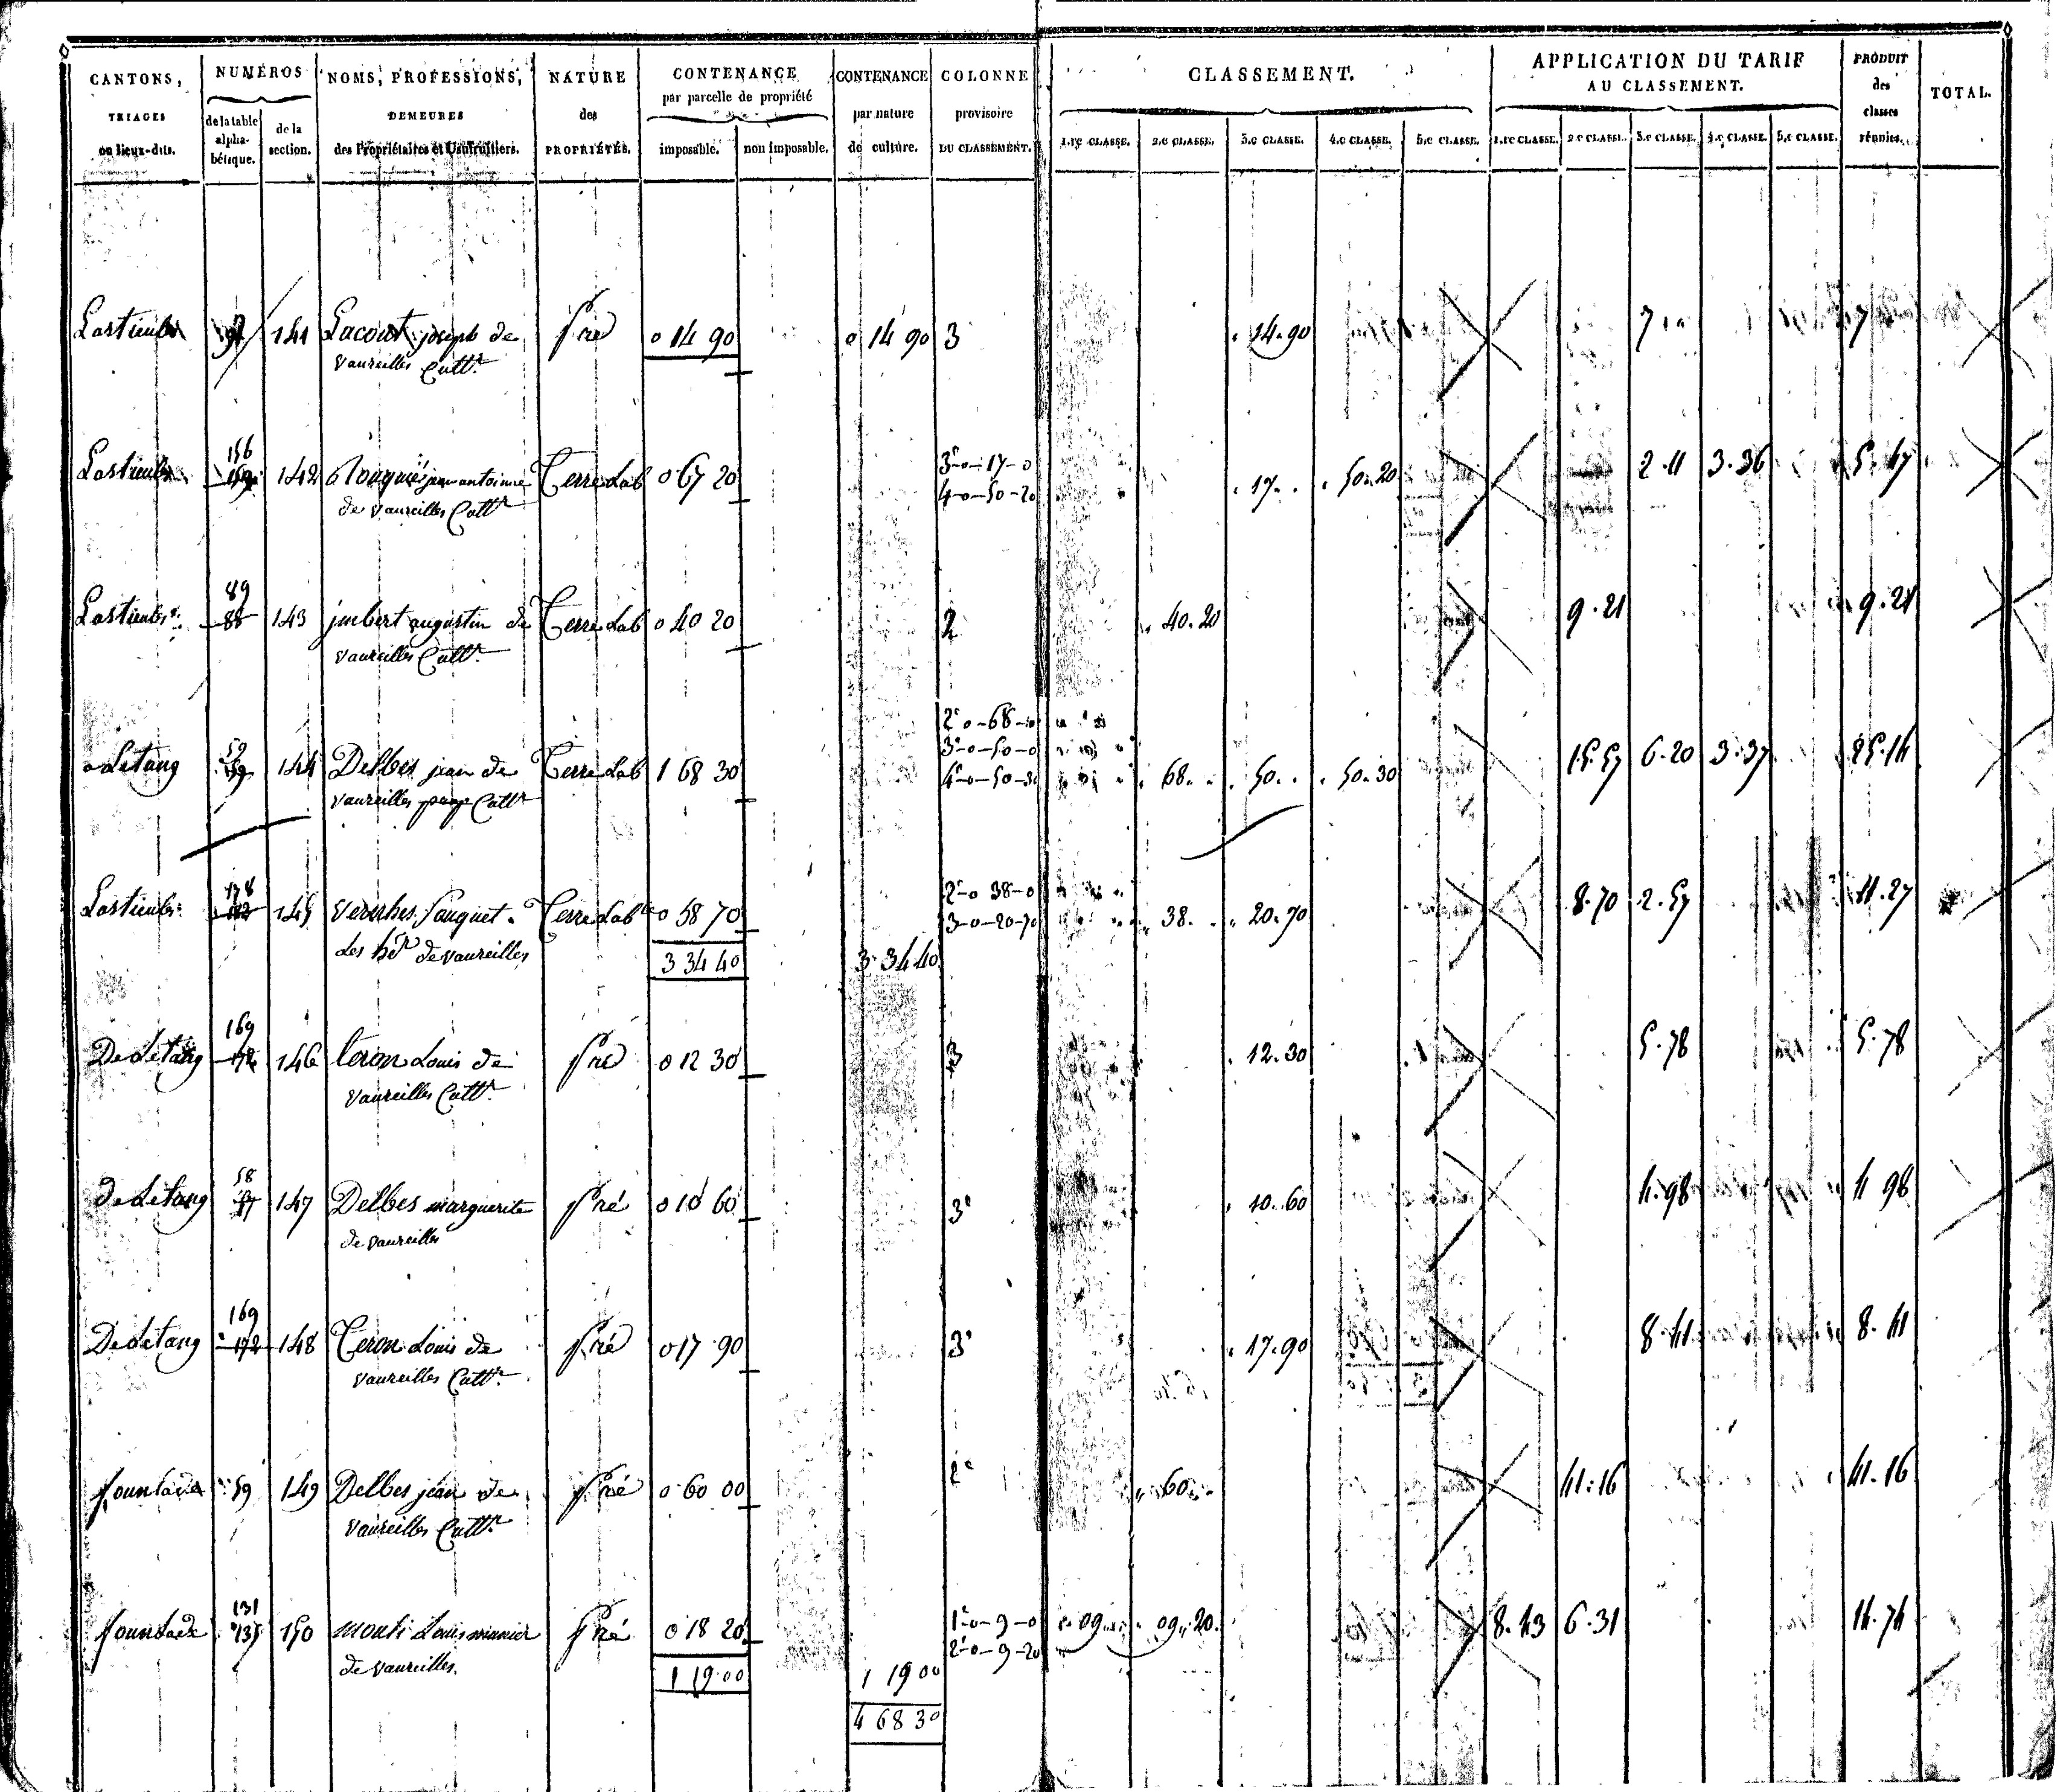 CANTONS, TRIAGES ou lieux-dits.
NUMÉROS de la table alphabétique. de la section.
NOMS, PROFESSIONS, DEMEURES des Propriétaires et Usufruitiers.
NATURE des PROPRIÉTÉS.
CONTENANCE par parcelle de propriété imposable. non imposable.
CONTENANCE par nature de culture.
COLONNE provisoire DU CLASSEMENT.
CLASSEMENT.
1.re CLASSE. 2.e CLASSE. 3.e CLASSE. 4.e CLASSE. 5.e CLASSE.
APPLICATION DU TARIF AU CLASSEMENT.
1.re CLASSE. 2.e CLASSE. 3.e CLASSE. 4.e CLASSE. 5.e CLASSE.
PRODUIT des classes réunies.
TOTAL.
141 Lacout joseph de Pré 0 14 90 0 14 90 3 14.90 7 7
vaureilles Cultr
156
142 jean antoine Terre Lab 0 67 20 3e-0-17-0 17 50.20 2.11 3.36 5.47
de vaureilles Cultr 4-0-50-20
89
88 143 jmbert augustin de Terre Lab 0 40 20 2 40.20 9.21 9.21
vaureilles Cultr
2e 0-68-0
59 3e-0-50-0
Letang 144 Delbes jean de Terre Lab 1 68 30 4e-0-50-30 68 50 50.30 15.57 6.20 3.37 25.14
vaureilles Cultr
178 2e-0 38-0
145 fouquet Terre Labe 0 58 70 3-0-20-70 38 20.70 8.70 2.57 11.27
Les hérs de vaureilles 3 34 40 3 34 40
169
De Letang 172 146 Teron Louis de Pré 0 12 30 3 12.30 5.78 5.78
vaureilles Cultr
58
de Letang 57 147 Delbes marguerite Pré 0 10 60 3e 10.60 4.98 4 98
de vaureilles
169
De Letang 172 148 Teron Louis de Pré 0 17 90 3e 17.90 8.41 8.41
vaureilles Cultr
59 149 Delbes jean de Pré 0 60 00 2e 60 41.16 41.16
vaureilles Cultr
131
135 150 Louis Pré 0 18 20 1e-0-9-0 09 09.20 8.43 6.31 14.74
de vaureilles. 2e-0-9-20
1 19 00 1 19 00
4 68 30